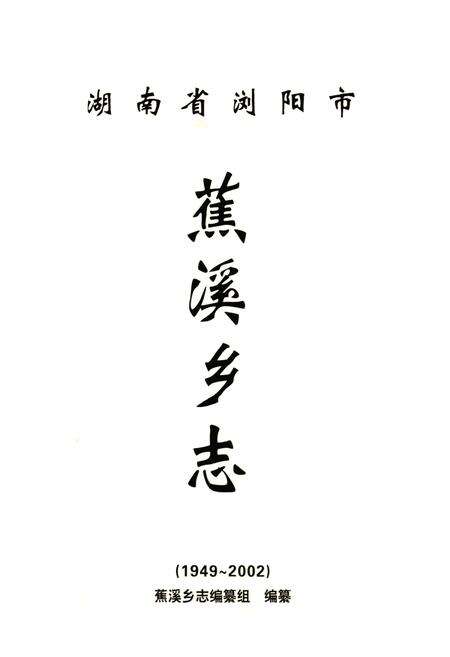 湖南省浏阳市
蕉溪乡志
(1949~2002)
蕉溪乡志编纂组 编纂